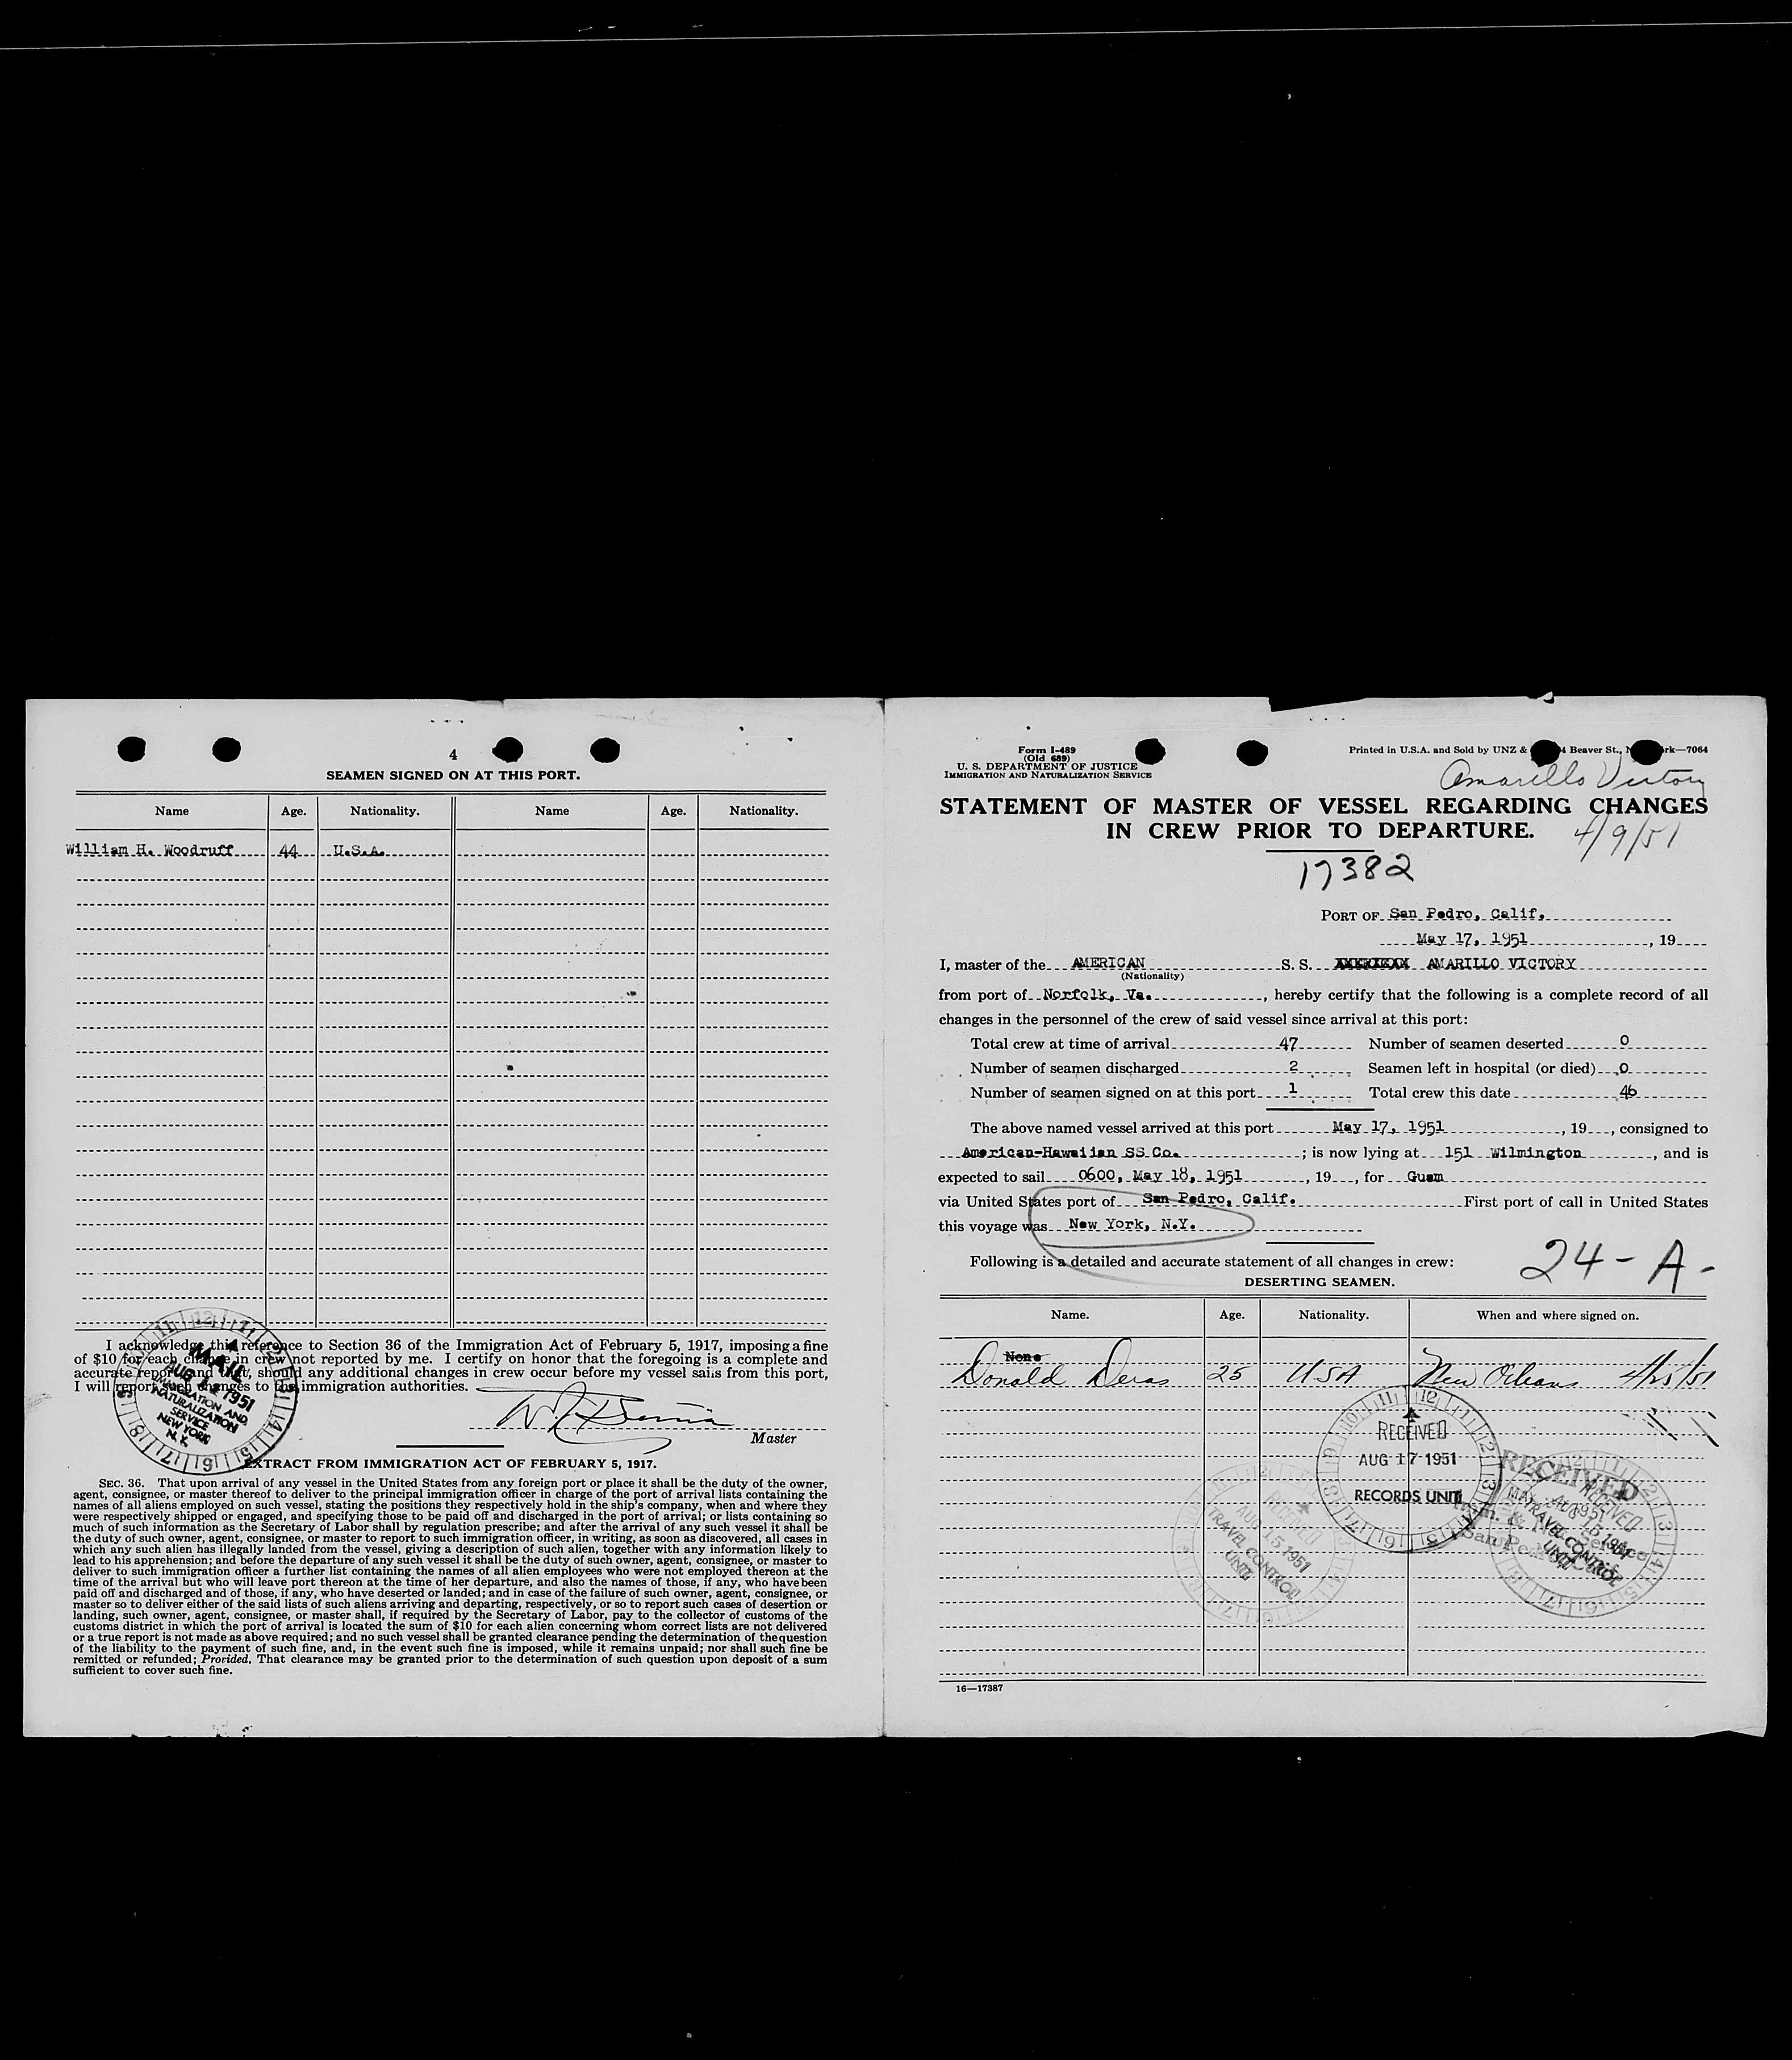 4
SEAMEN SIGNED ON AT THIS PORT.
Name Age. Nationality. Name Age. Nationality.
William H. Woodruff 44 U.S.A.
I acknowledge this reference to Section 36 of the Immigration Act of February 5, 1917, imposing a fine
of $10 for each change in crew not reported by me. I certify on honor that the foregoing is a complete and
accurate report, and that, should any additional changes in crew occur before my vessel sails from this port,
I will report such changes to the immigration authorities.
Master
MAIL
AUG 1951
IMMIGRATION AND
NATURALIZATION
SERVICE
NEW YORK
N. Y.
EXTRACT FROM IMMIGRATION ACT OF FEBRUARY 5, 1917.
SEC. 36. That upon arrival of any vessel in the United States from any foreign port or place it shall be the duty of the owner,
agent, consignee, or master thereof to deliver to the principal immigration officer in charge of the port of arrival lists containing the
names of all aliens employed on such vessel, stating the positions they respectively hold in the ship's company, when and where they
were respectively shipped or engaged, and specifying those to be paid off and discharged in the port of arrival; or lists containing so
much of such information as the Secretary of Labor shall by regulation prescribe; and after the arrival of any such vessel it shall be
the duty of such owner, agent, consignee, or master to report to such immigration officer, in writing, as soon as discovered, all cases in
which any such alien has illegally landed from the vessel, giving a description of such alien, together with any information likely to
lead to his apprehension; and before the departure of any such vessel it shall be the duty of such owner, agent, consignee, or master to
deliver to such immigration officer a further list containing the names of all alien employees who were not employed thereon at the
time of the arrival but who will leave port thereon at the time of her departure, and also the names of those, if any, who have been
paid off and discharged and of those, if any, who have deserted or landed; and in case of the failure of such owner, agent, consignee, or
master so to deliver either of the said lists of such aliens arriving and departing, respectively, or so to report such cases of desertion or
landing, such owner, agent, consignee, or master shall, if required by the Secretary of Labor, pay to the collector of customs of the
customs district in which the port of arrival is located the sum of $10 for each alien concerning whom correct lists are not delivered
or a true report is not made as above required; and no such vessel shall be granted clearance pending the determination of the question
of the liability to the payment of such fine, and, in the event such fine is imposed, while it remains unpaid; nor shall such fine be
remitted or refunded; Provided, That clearance may be granted prior to the determination of such question upon deposit of a sum
sufficient to cover such fine.
Form I-489
(Old 689)
U. S. DEPARTMENT OF JUSTICE
IMMIGRATION AND NATURALIZATION SERVICE
Printed in U.S.A. and Sold by UNZ & Beaver St., rk—7064
Amarillo Victory
STATEMENT OF MASTER OF VESSEL REGARDING CHANGES
IN CREW PRIOR TO DEPARTURE.
4/9/51
17382
PORT OF San Pedro, Calif.
May 17, 1951, 19
I, master of the AMERICAN S. S. AMARILLO VICTORY
(Nationality)
from port of Norfolk, Va., hereby certify that the following is a complete record of all
changes in the personnel of the crew of said vessel since arrival at this port:
Total crew at time of arrival 47 Number of seamen deserted 0
Number of seamen discharged 2 Seamen left in hospital (or died) 0
Number of seamen signed on at this port 1 Total crew this date 46
The above named vessel arrived at this port May 17, 1951, 19, consigned to
American-Hawaiian SS Co.; is now lying at 151 Wilmington, and is
expected to sail 0600, May 18, 1951, 19, for Guam
via United States port of San Pedro, Calif. First port of call in United States
this voyage was New York, N.Y.
Following is a detailed and accurate statement of all changes in crew:
24-A-
DESERTING SEAMEN.
Name. Age. Nationality. When and where signed on.
None
Donald Deras 25 USA New Orleans 4/25/51
RECEIVED
AUG 17 1951
RECORDS UNIT
RECEIVED
AUG 15 1951
TRAVEL CONTROL
UNIT
RECEIVED
San Pedro
RECEIVED
15 1951
TRAVEL CONTROL
UNIT
16—17387